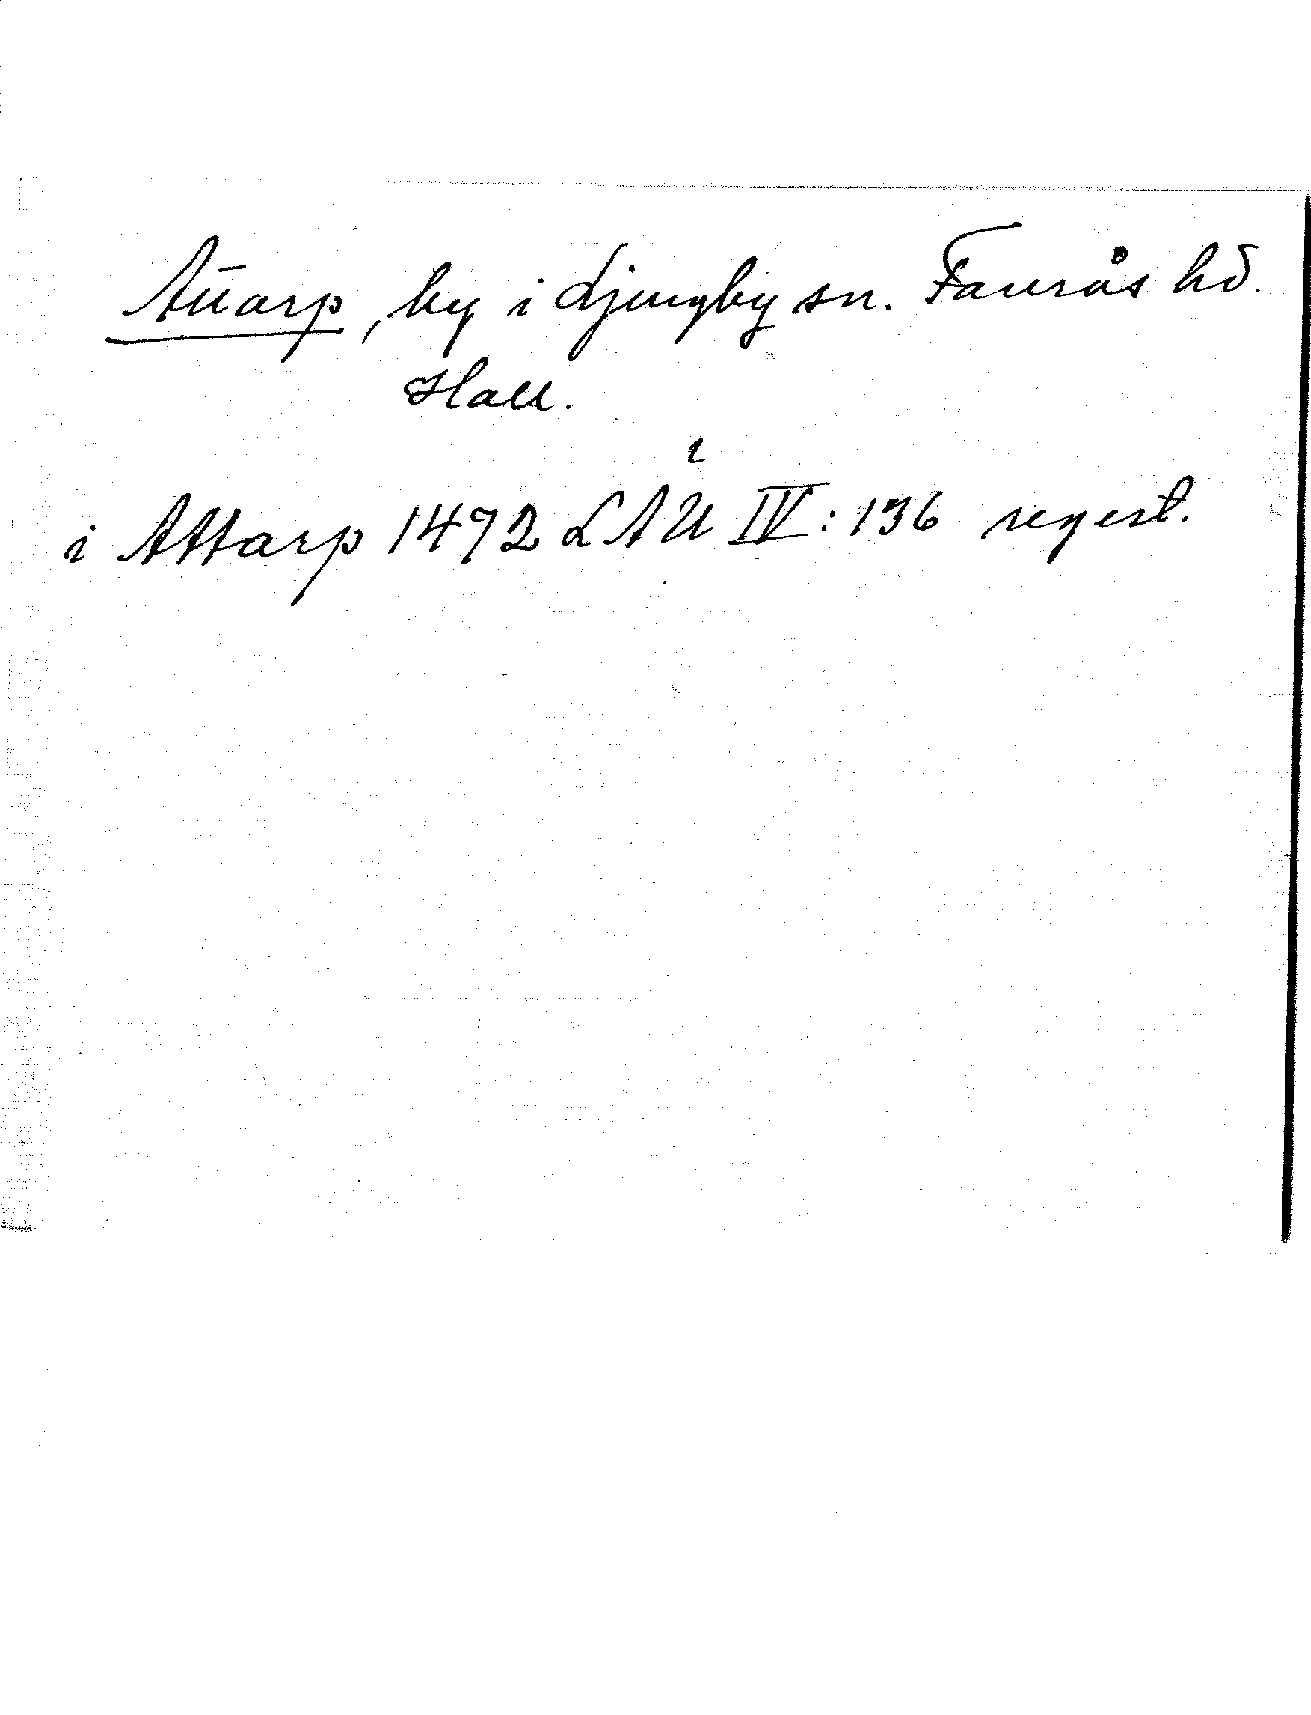 Attarp, by i Ljungby sn. Faurås hd.
Hall.
i Attarp 1492 LAU IV: 136 regest.